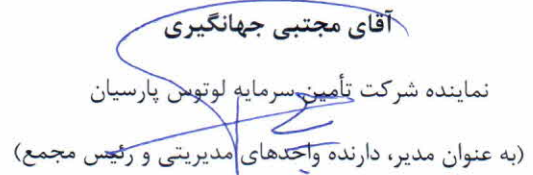 آقای مجتبی جهانگیری
نماینده شرکت تأمین سرمایه لوتوس پارسیان
(به عنوان مدیر، دارنده واحدهای مدیریتی و رئیس مجمع)